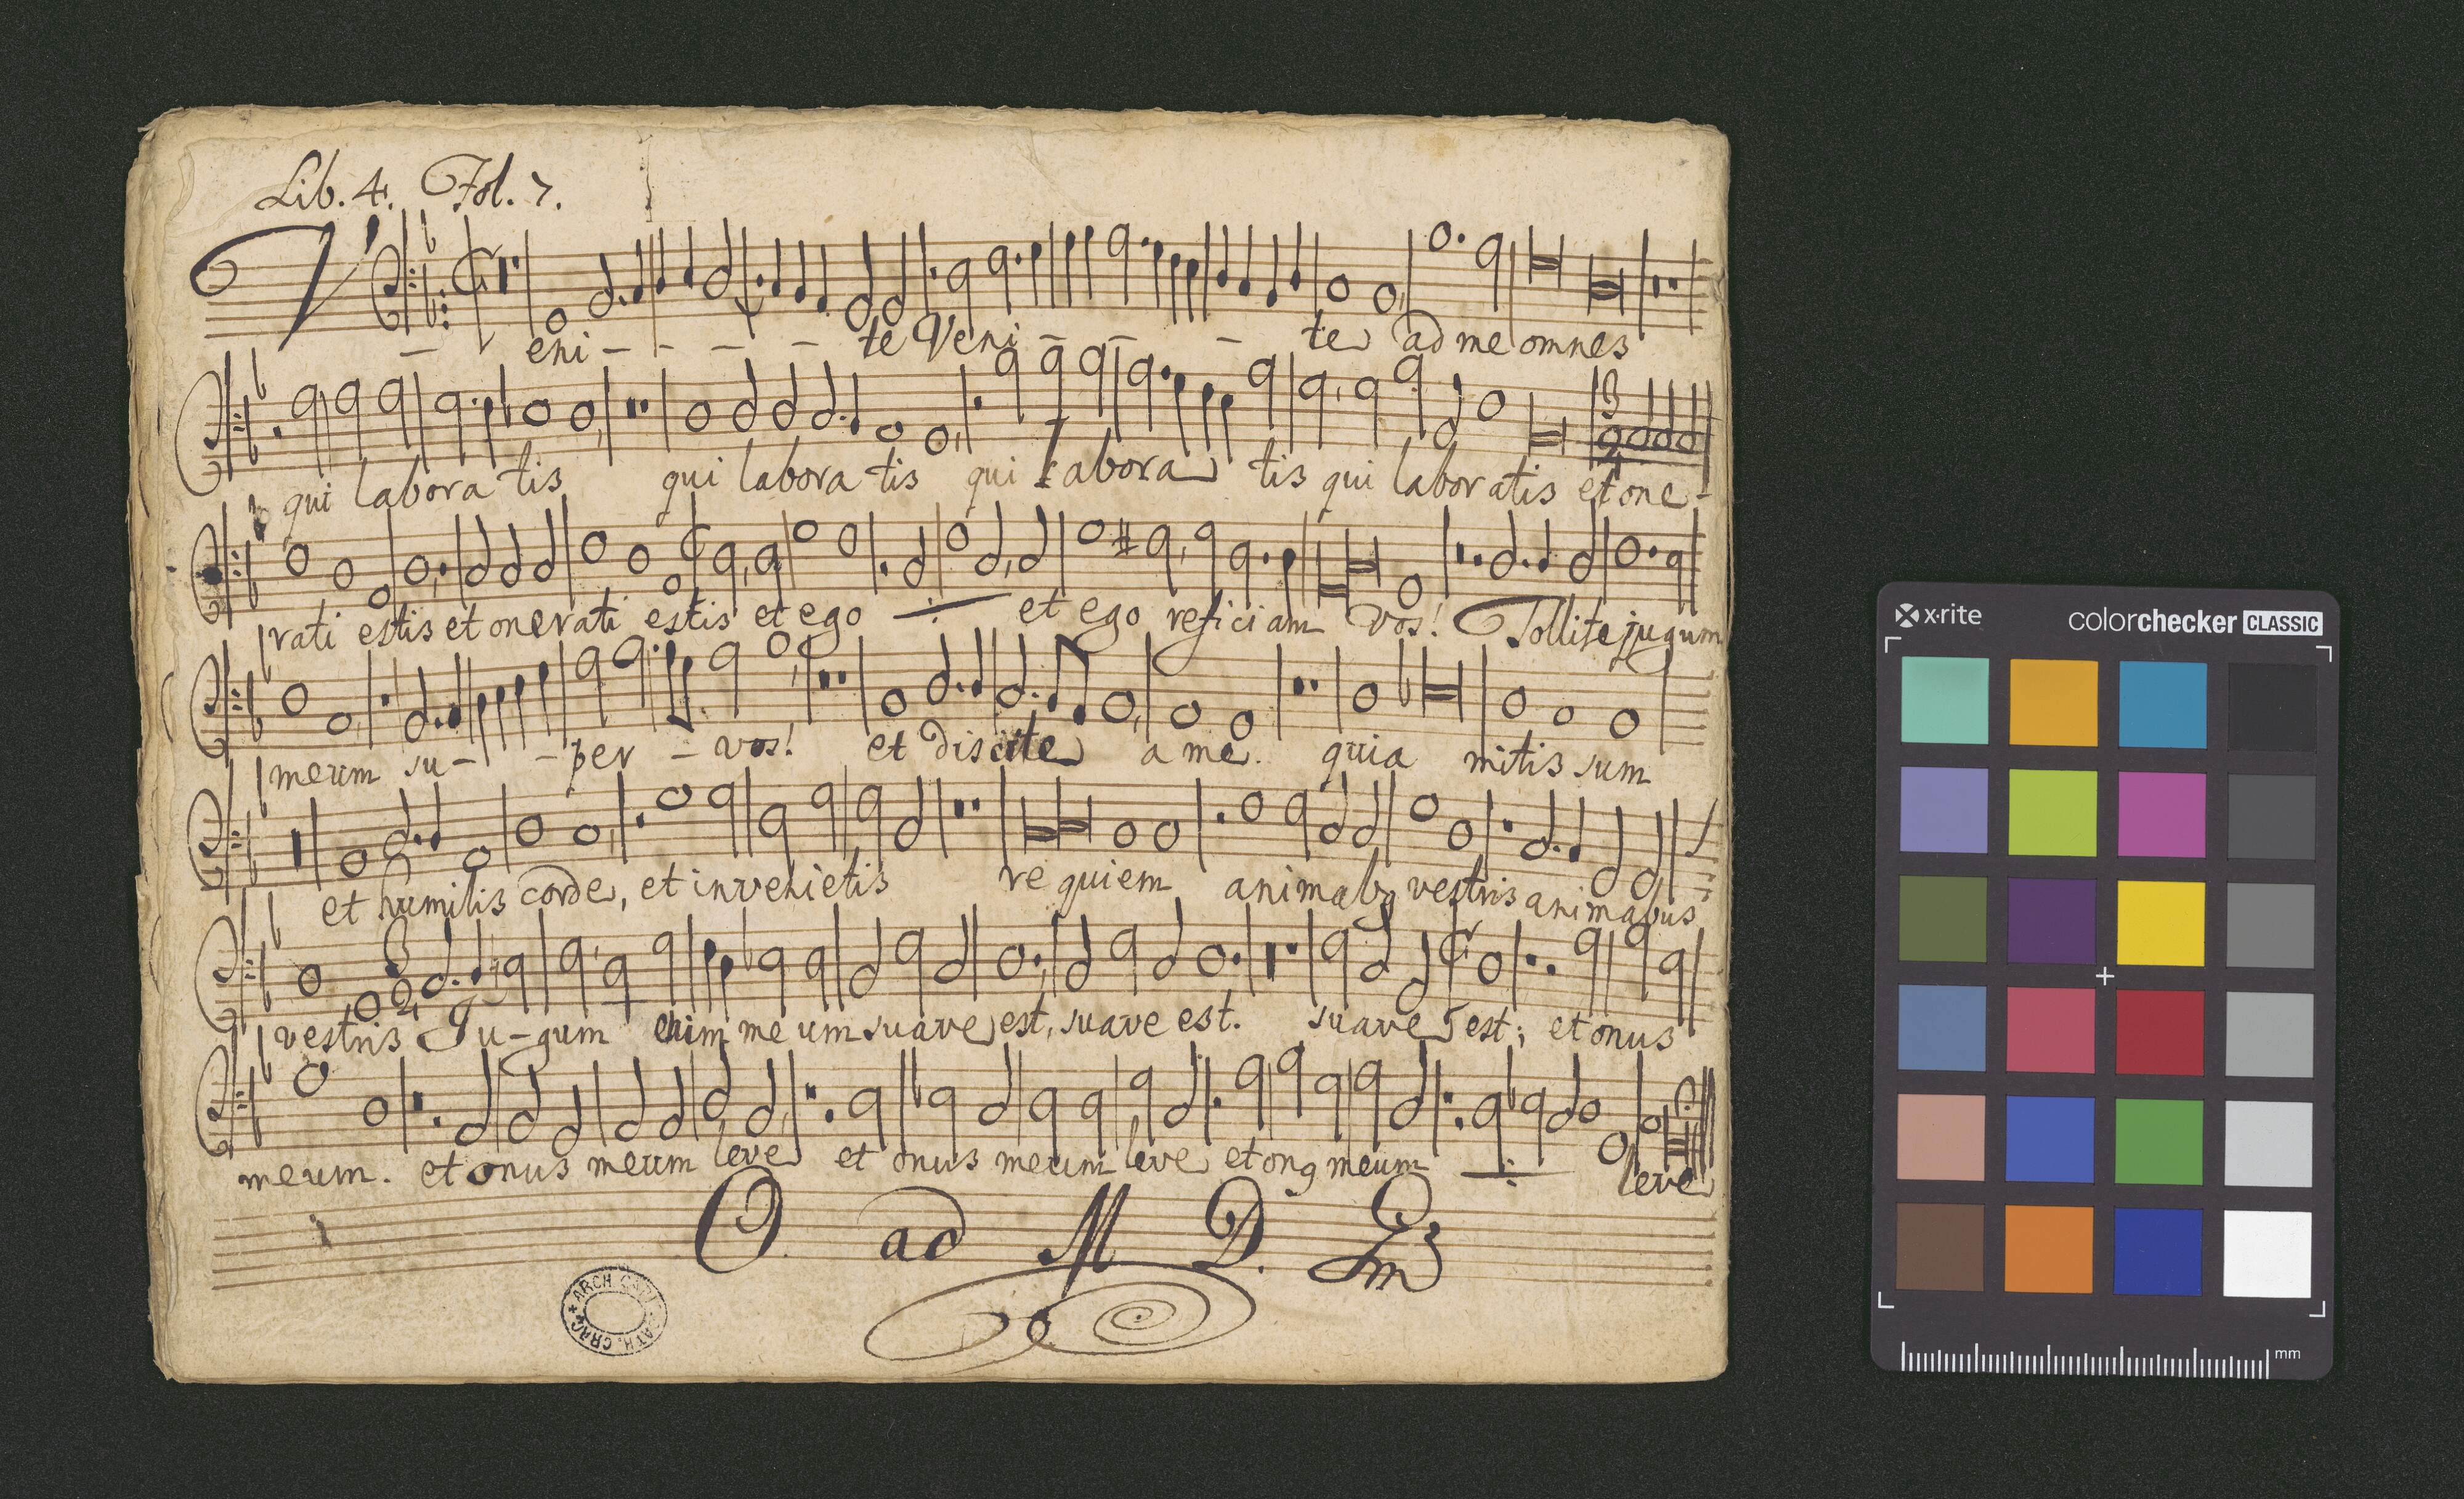 Lib. 4. Fol. 7.
Veni - - - - te Veni - - - te ad me omnes
qui laboratis qui laboratis qui labora tis qui laboratis et one-
rati estis et onerati estis et ego ÷ et ego reficiam vos! Tollite jugum
meum su- - per - vos! et discite a me. quia mitis sum
et humilis corde, et invenietis requiem animabg vestris animabus
vestris Ju-gum enim meum suave est, suave est. suave est; et onus
meum. et onus meum leve et onus meum leve et ong meum ÷ leve
O ad M D
ARCH. CATH. CRAC
x·rite colorchecker CLASSIC
mm